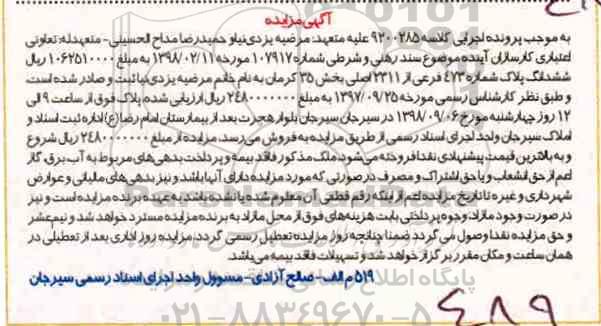 آگهی مزایده
به موجب پرونده اجرایی کلاسه ۹۳۰۰۲۸۵ علیه متعهد: مرضیه یزدی نیا و حمیدرضا مداح الحسینی - متعهدله: تعاونی
اعتباری کارسازان آینده موضوع سند رهنی و شرطی شماره ۱۰۷۹۱۷ مورخه ۱۳۹۸/۰۲/۱۱ به مبلغ ۱۰۶۲۵۱۰۰۰۰ ریال
ششدانگ پلاک شماره ۴۷۳ فرعی از ۲۳۱۱ اصلی بخش ۳۵ کرمان به نام خانم مرضیه یزدی نیا ثبت و صادر شده است
و طبق نظر کارشناس رسمی مورخه ۱۳۹۷/۰۹/۲۵ به مبلغ ۲۴۸۰۰۰۰۰۰۰ ریال ارزیابی شده پلاک فوق از ساعت ۹ الی
۱۲ روز چهارشنبه مورخ ۱۳۹۸/۰۹/۰۶ در سیرجان سیرجان بلوار هجرت بعد از بیمارستان امام رضا (ع) اداره ثبت اسناد و
املاک سیرجان واحد اجرای اسناد رسمی از طریق مزایده به فروش می رسد. مزایده از مبلغ ۲۴۸۰۰۰۰۰۰۰ ریال شروع
و به بالاترین قیمت پیشنهادی نقدا فروخته می شود. ملک مذکور فاقد بیمه و پرداخت بدهی های مربوط به آب، برق، گاز
اعم از حق انشعاب و یا حق اشتراک و مصرف در صورتی که مورد مزایده دارای آنها باشد و نیز بدهی های مالیاتی و عوارض
شهرداری و غیره تا تاریخ مزایده اعم از اینکه رقم قطعی آن معلوم شده یا نشده باشد به عهده برنده مزایده است و نیز
در صورت وجود مازاد، وجوه پرداختی بابت هزینه های فوق از محل مازاد به برنده مزایده مسترد خواهد شد و نیم عشر
و حق مزایده نقدا وصول می گردد ضمنا چنانچه روز مزایده تعطیل رسمی گردد، مزایده روز اداری بعد از تعطیلی در
همان ساعت و مکان مقرر برگزار خواهد شد و تسهیلات فاقد بیمه می باشد.
۵۱۹ م الف - صالح آزادی - مسوول واحد اجرای اسناد رسمی سیرجان
۰۲۱-۸۸۳۴۹۶۷۰-۵
۴۸۹